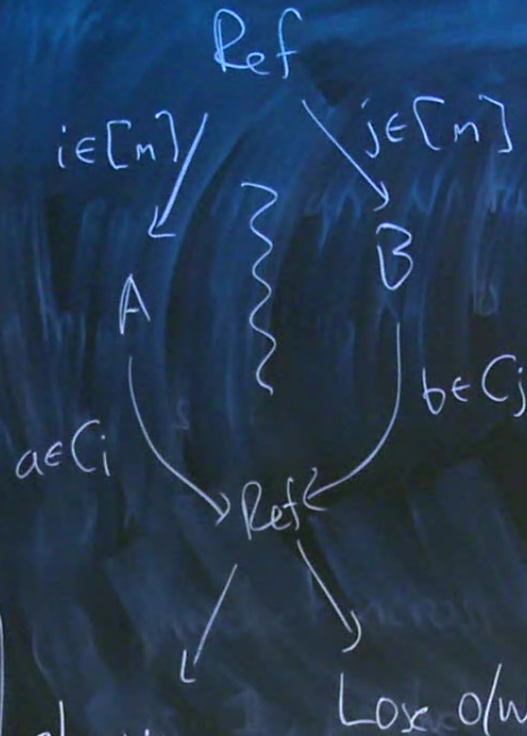 Ref
i∈[n] j∈[n]
A B
a∈Ci b∈Cj
Ref
Lose o/w